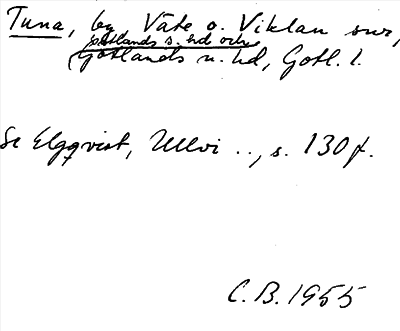 Tuna, by Väte o. Viklau snr,
Gotlands s. hd och
Gotlands n. hd, Gotl. l.
Se Elgqvist, Ullvi .., s. 130 f.
C. B. 1955